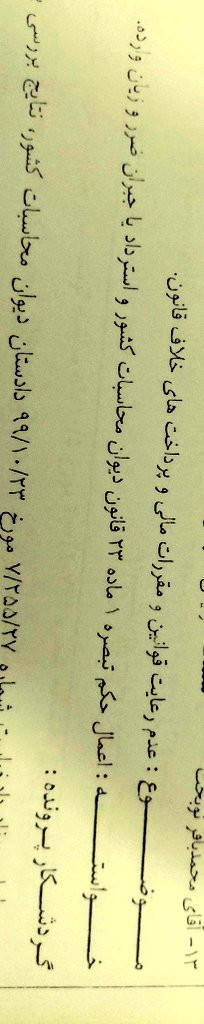 ۱۳- آقای محمدباقر نوبخت
مـــوضـــوع : عدم رعایت قوانین و مقررات مالی و پرداخت های خلاف قانون.
خـــواستـــه : اعمال حکم تبصره ۱ ماده ۲۳ قانون دیوان محاسبات کشور و استرداد یا جبران ضرر و زیان وارده.
گـردشـکار پـرونده :
شماره ۷/۲۵۵/۲۷ مورخ ۹۹/۱۰/۲۳ دادستان دیوان محاسبات کشور، نتایج بررسی